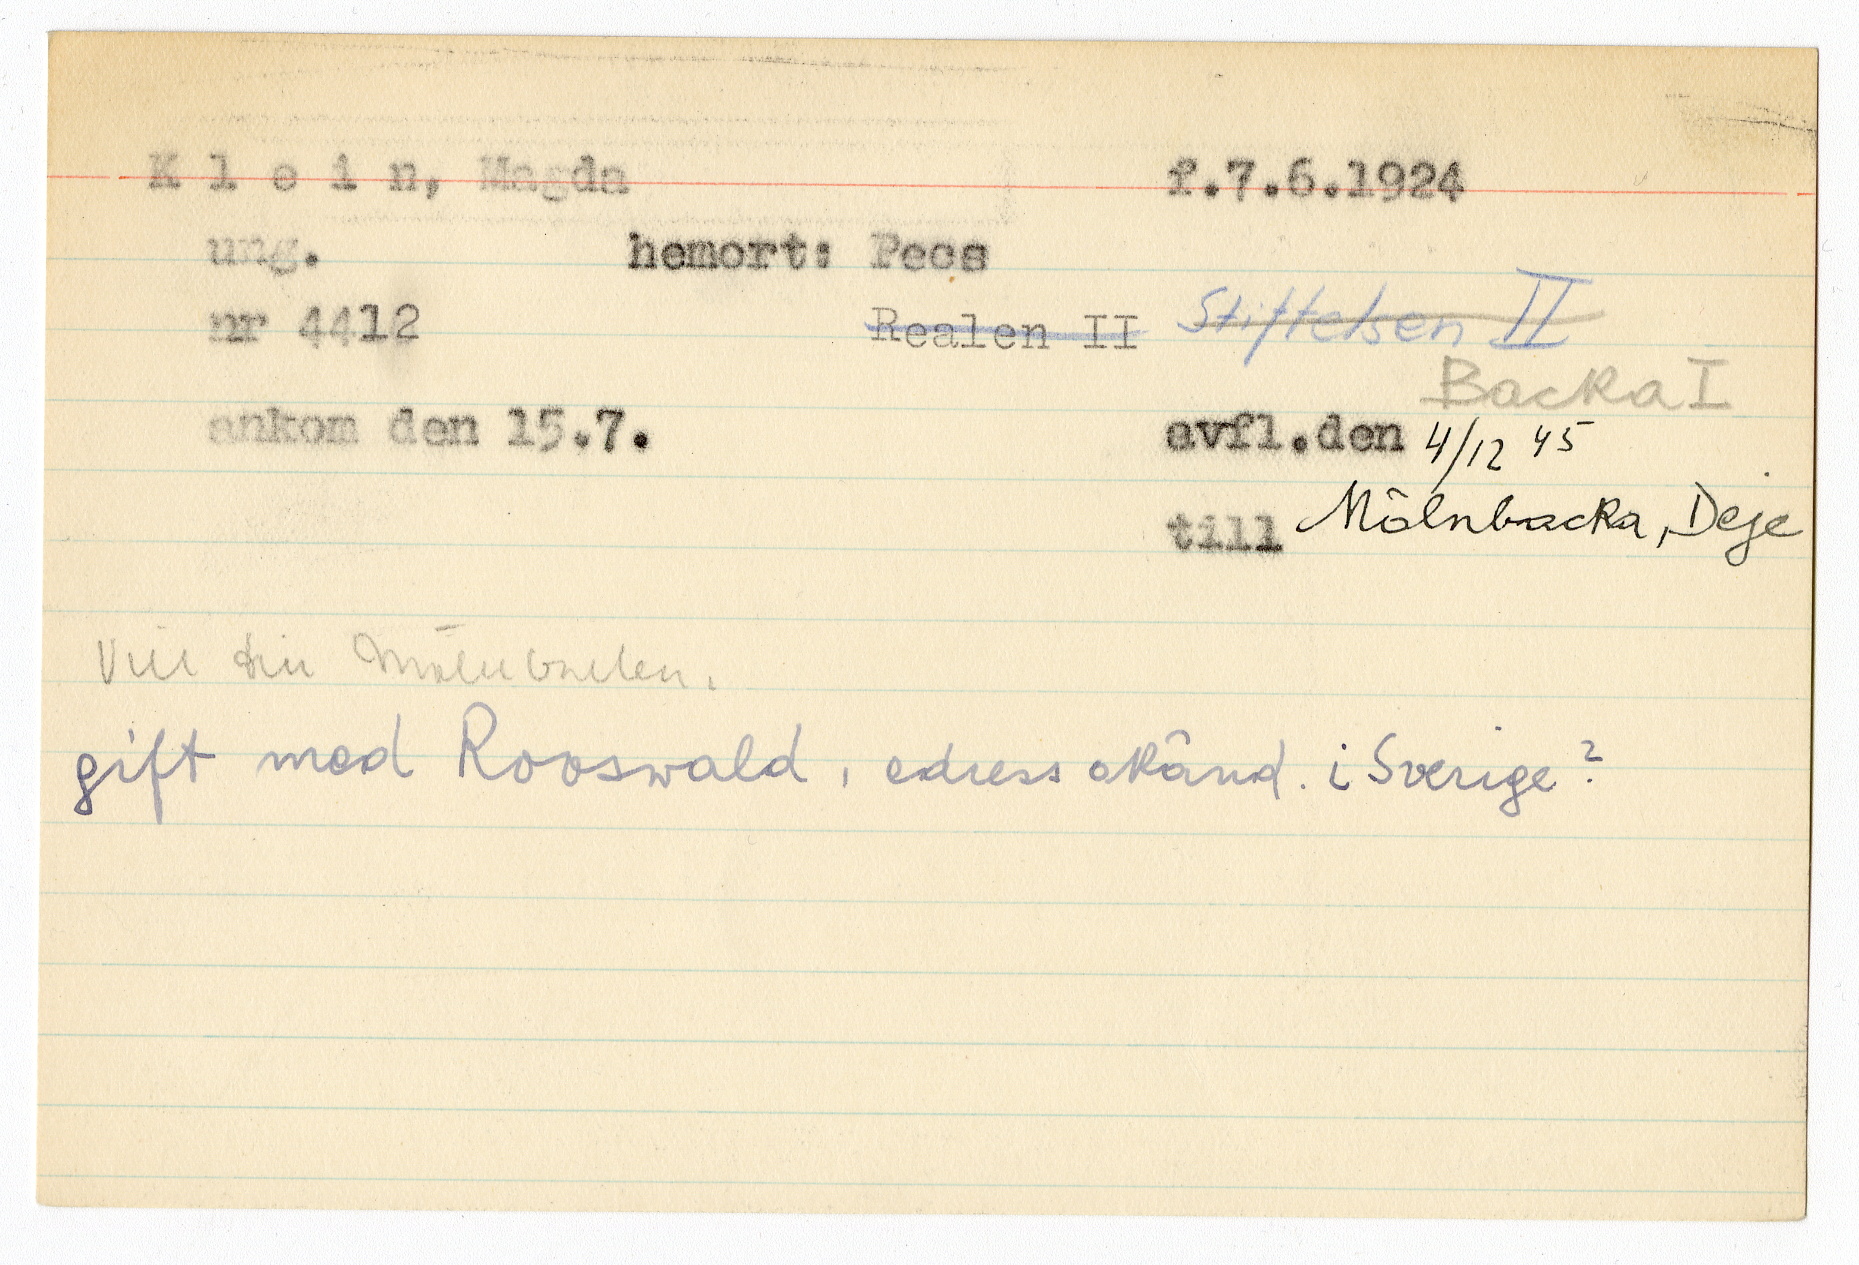 K l e i n, Magda f.7.6.1924
ung. hemort: Pecs
nr 4412 Realen II Stiftelsen II
Backa I
ankom den 15.7. avfl.den 4/12 45
till Mölnbacka, Deje
Vill till Mölnbacken.
gift med Rooswald, adress okänd. i Sverige?